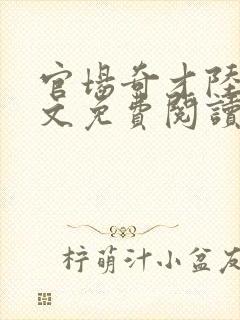 官場奇才陸
文免費閱讀
梓萌汁小盆友